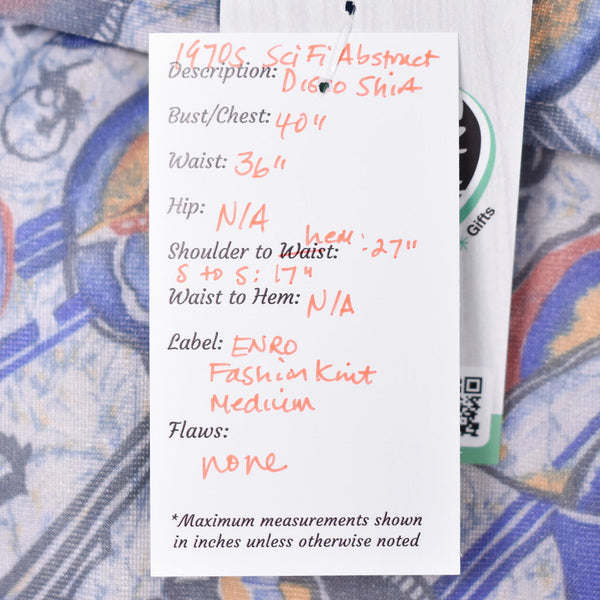 1970s SciFi Abstract
Description: Disco Shirt
Bust/Chest: 40"
Waist: 36"
Hip: N/A
hem:
Shoulder to Waist: 27"
S to S: 17"
Waist to Hem: N/A
Label: ENRO
Fashion Knit
Medium
Flaws:
none
*Maximum measurements shown
in inches unless otherwise noted
Gifts